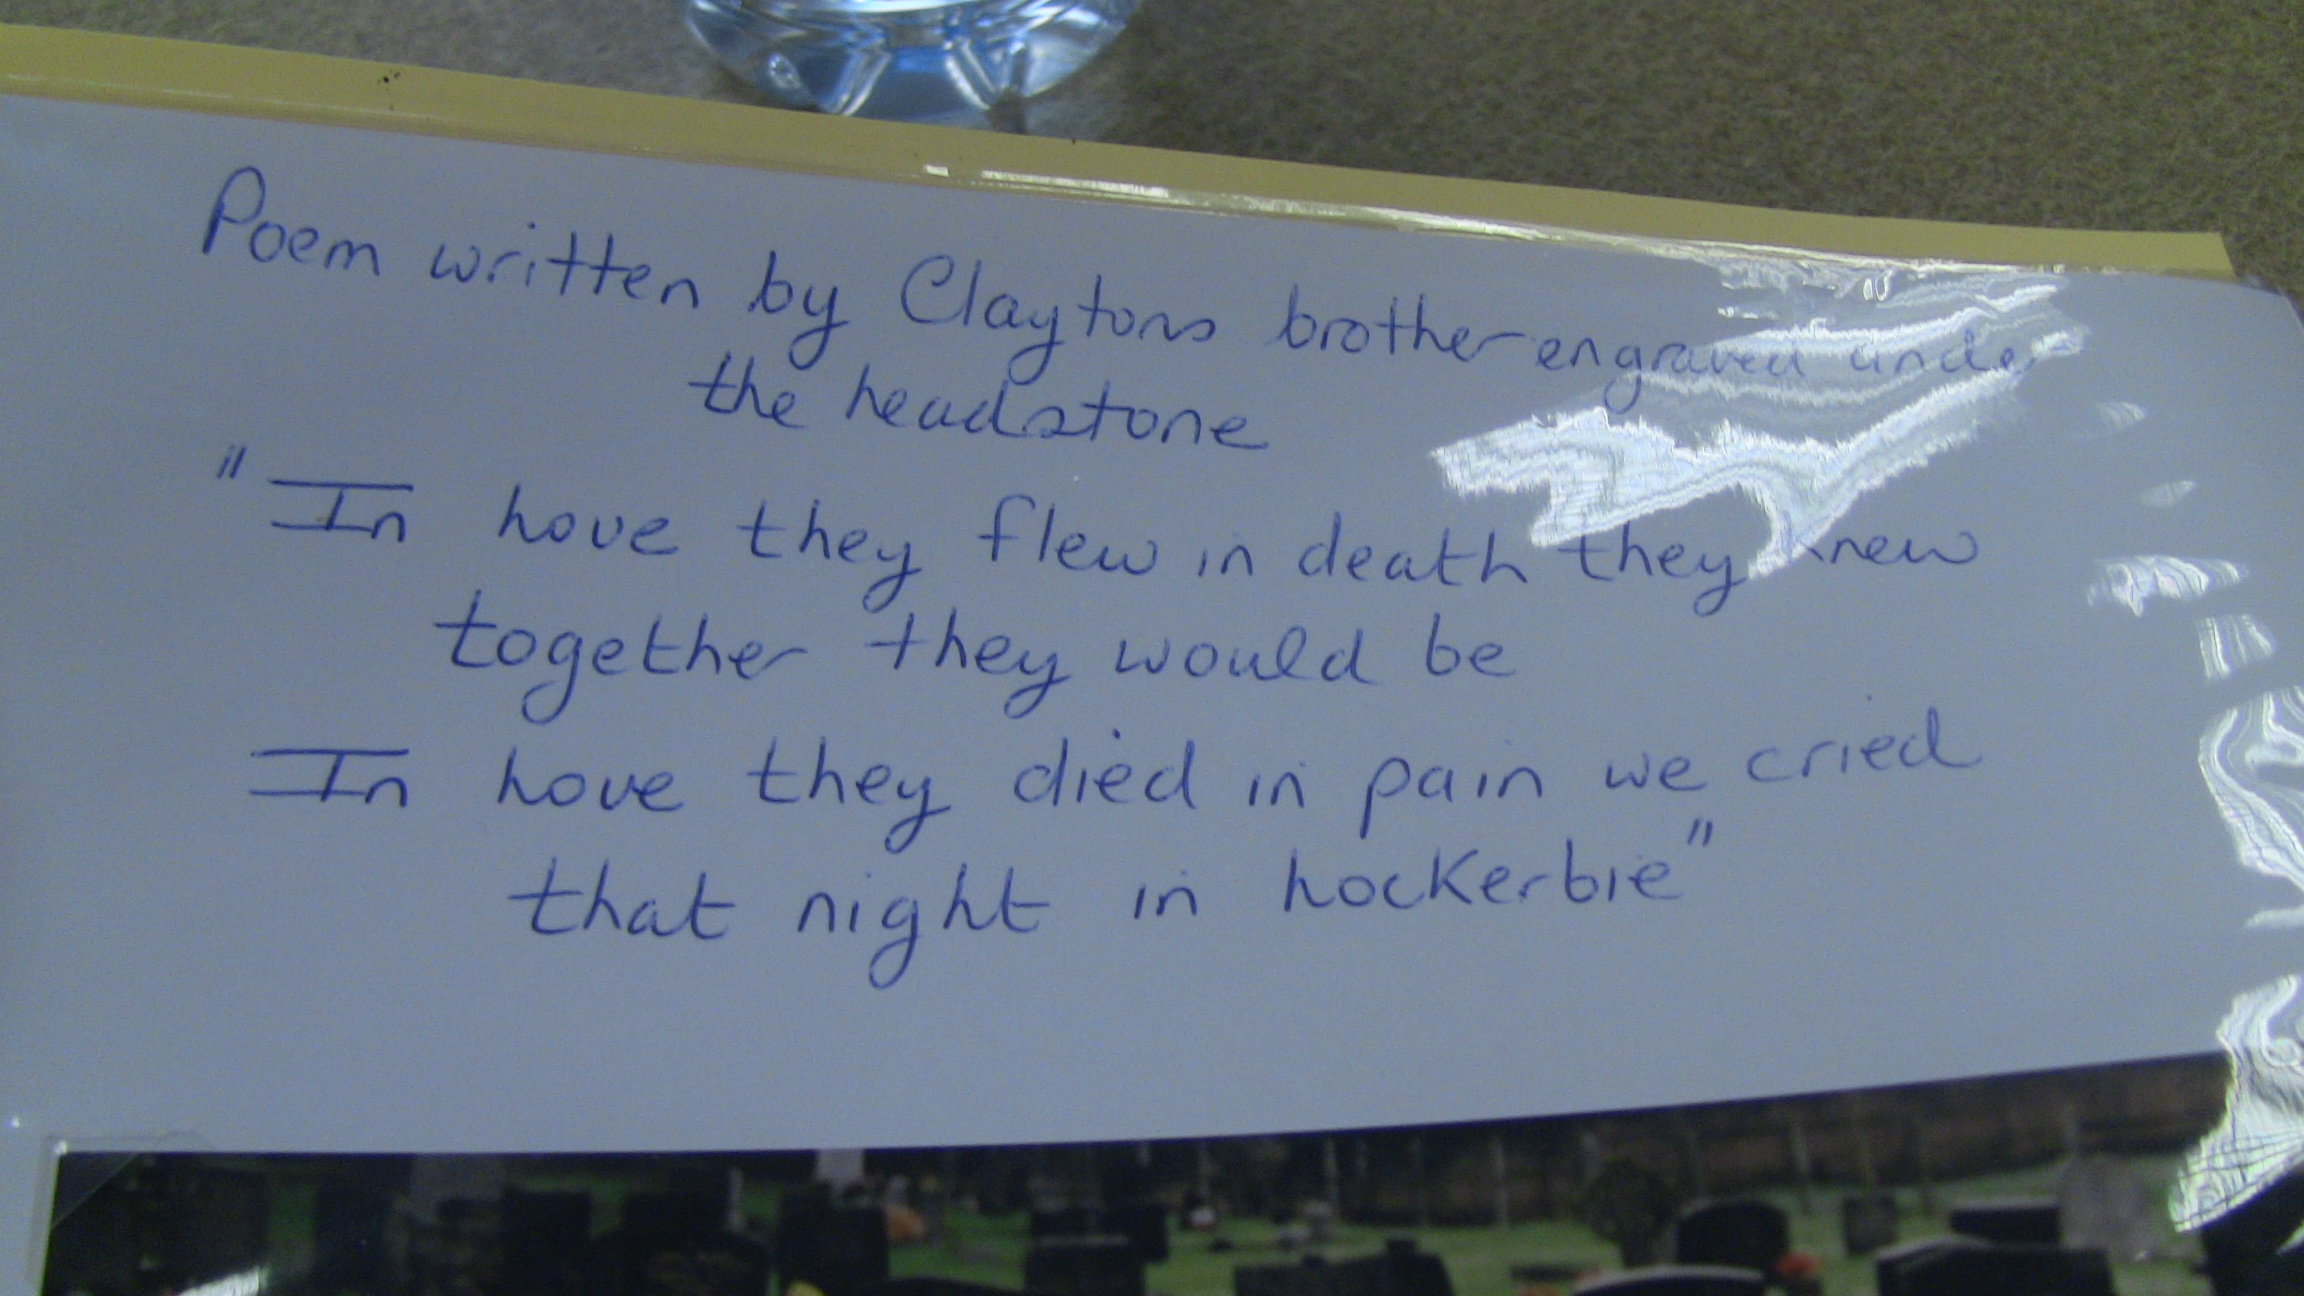 Poem written by Claytons brother engraved under
the headstone
"In Love they flew in death they knew
together they would be
In Love they died in pain we cried
that night in Lockerbie"